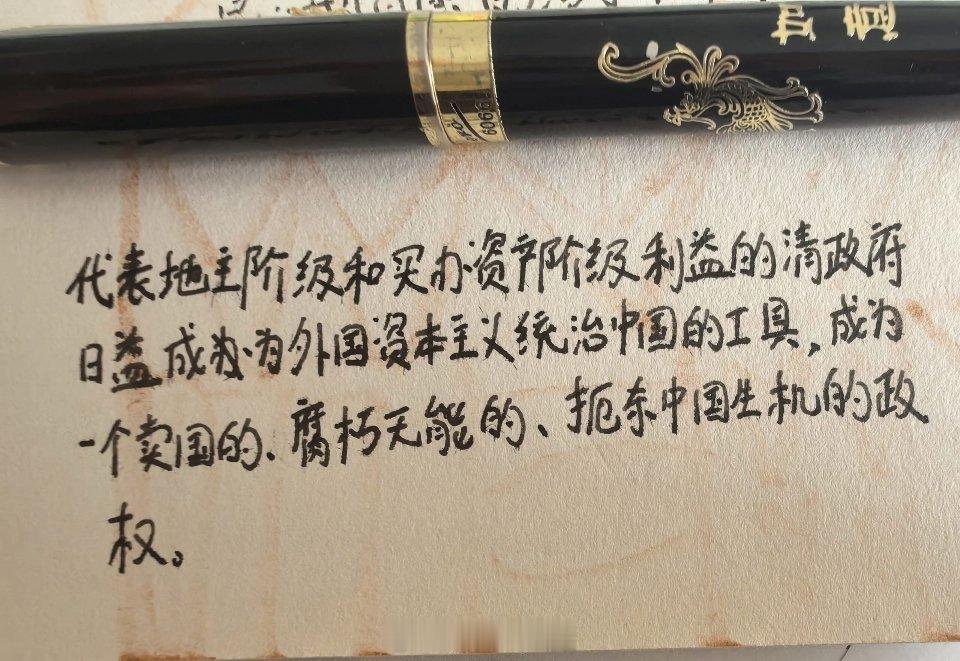 如意
6066
代表地主阶级和买办资产阶级利益的清政府
日益成为为外国资本主义统治中国的工具，成为
一个卖国的、腐朽无能的、扼杀中国生机的政
权。